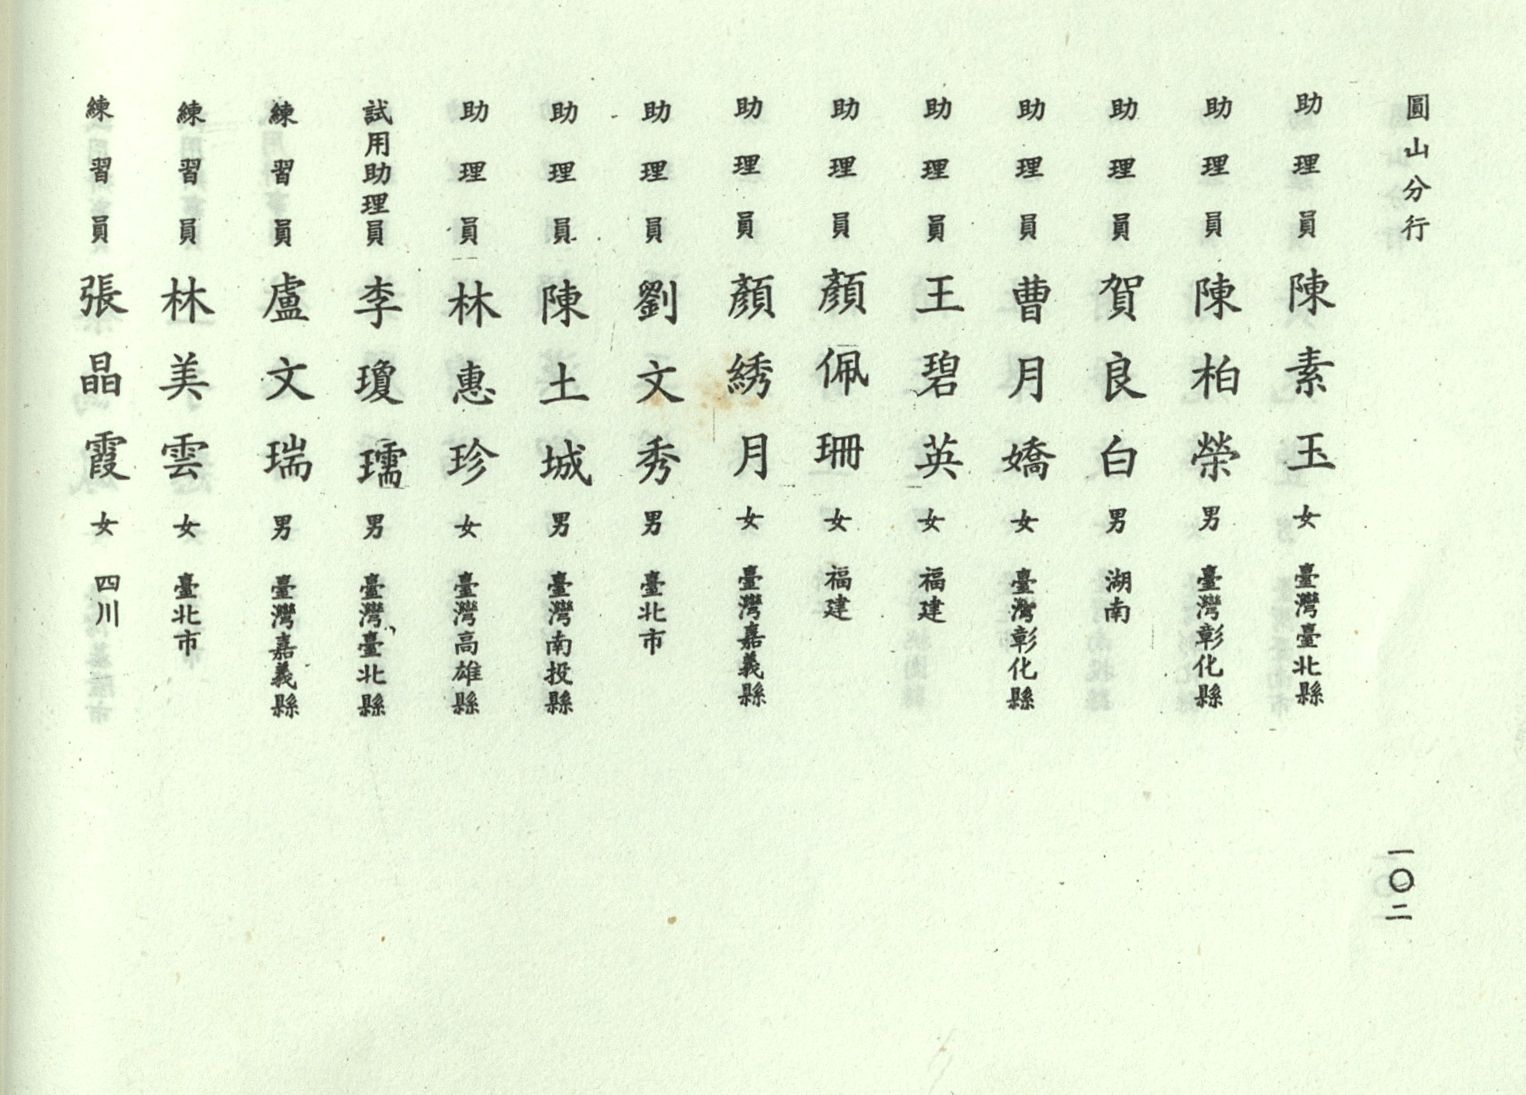 圓山分行
助理員 陳素玉 女 臺灣臺北縣
助理員 陳柏榮 男 臺灣彰化縣
助理員 賀良白 男 湖南
助理員 曹月嬌 女 臺灣彰化縣
助理員 王碧英 女 福建
助理員 顏佩珊 女 福建
助理員 顏綉月 女 臺灣嘉義縣
助理員 劉文秀 男 臺北市
助理員 陳土城 男 臺灣南投縣
助理員 林惠珍 女 臺灣高雄縣
試用助理員 李瓊瓀 男 臺灣臺北縣
練習員 盧文瑞 男 臺灣嘉義縣
練習員 林美雲 女 臺北市
練習員 張晶霞 女 四川
一〇二